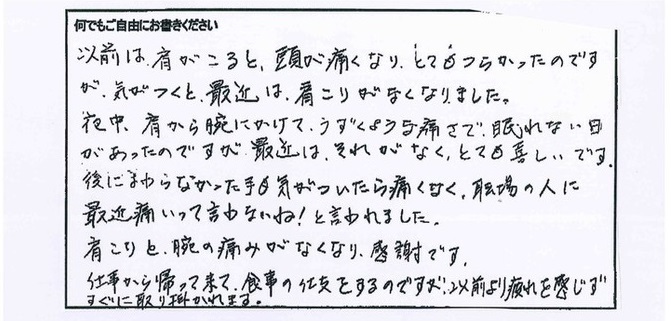 何でもご自由にお書きください
以前は、肩がこると、頭が痛くなり、とてもつらかったのです
が、気がつくと、最近は、肩こりがなくなりました。
夜中、肩から腕にかけて、うずくような痛さで、眠れない日
があったのですが、最近は、それがなく、とても喜しいです。
後にまわらなかった手も気がついたら痛くなく、職場の人に
最近痛いって言わないね!と言われました。
肩こりと、腕の痛みがなくなり、感謝です。
仕事から帰って来て、食事の仕支をするのですが、以前より疲れを感じず
すぐに取り掛かれます。